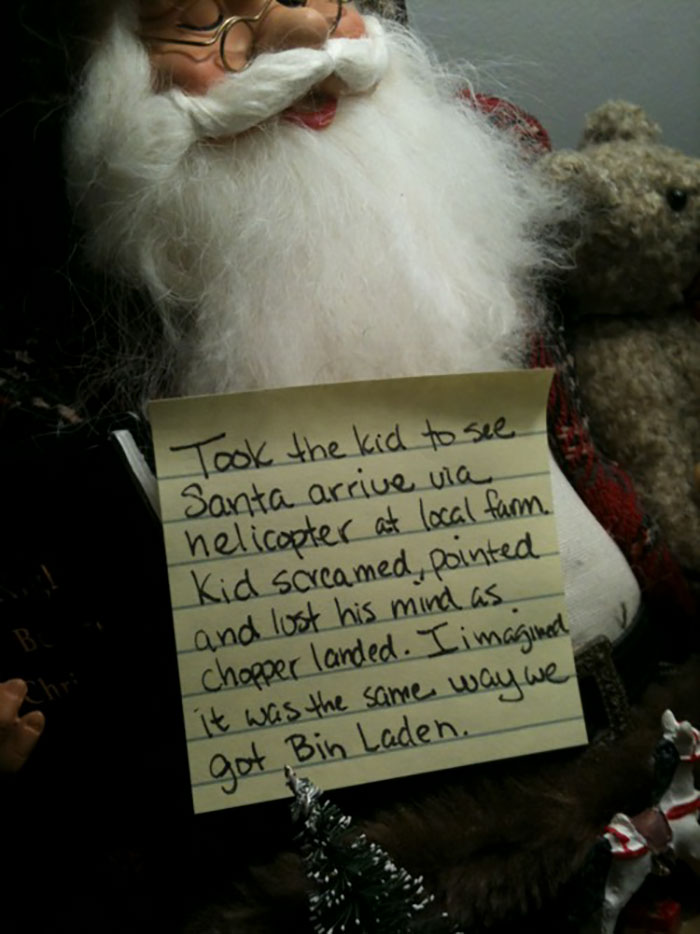 Took the kid to see
Santa arrive via
helicopter at local farm.
Kid screamed, pointed
and lost his mind as
chopper landed. I imagined
it was the same way we
got Bin Laden.